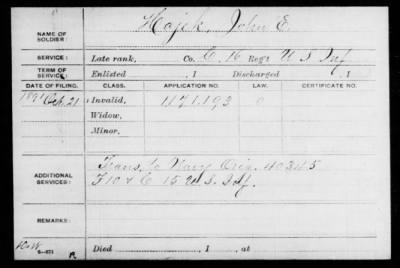 NAME OF SOLDIER: Hajek, John E.
SERVICE: Late rank, Co. C, 16 Reg't U S Inf
TERM OF SERVICE: Enlisted , 1 Discharged , 1
DATE OF FILING. CLASS. APPLICATION NO. LAW. CERTIFICATE NO.
1891 21 Invalid, 1171.193
Widow,
Minor,
ADDITIONAL SERVICES: Trans. to Navy Orig. 40345
F 10 & C 15 U.S. Inf.
REMARKS:
Died , 1 , at